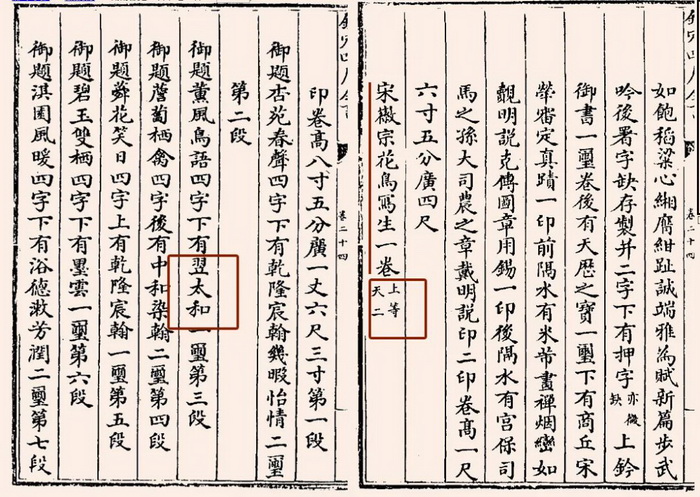 如飽稻粱心緗膺紺趾誠端雅為賦新篇步武
吟後署字缺存製并二字下有押字亦微缺上鈐
御書一璽卷後有天歷之寶一璽下有商丘宋
犖審定真蹟一印前隔水有米芾畫禪烟巒如
覿明説克傳國章用錫一印後隔水有宮保司
馬之孫大司農之章戴明説印二印卷高一尺
六寸五分廣四尺
宋徽宗花鳥寫生一卷上等天二
卷二十四
印卷高八寸五分廣一丈六尺三寸第一段
御題杏苑春聲四字下有乾隆宸翰幾暇怡情二璽
第二段
御題薰風鳥語四字下有翌太和一璽第三段
御題薝蔔栖禽四字後有中和染翰二璽第四段
御題舜花笑日四字上有乾隆宸翰一璽第五段
御題碧玉雙栖四字下有墨雲一璽第六段
御題淇園風暖四字下有浴德漱芳潤二璽第七段